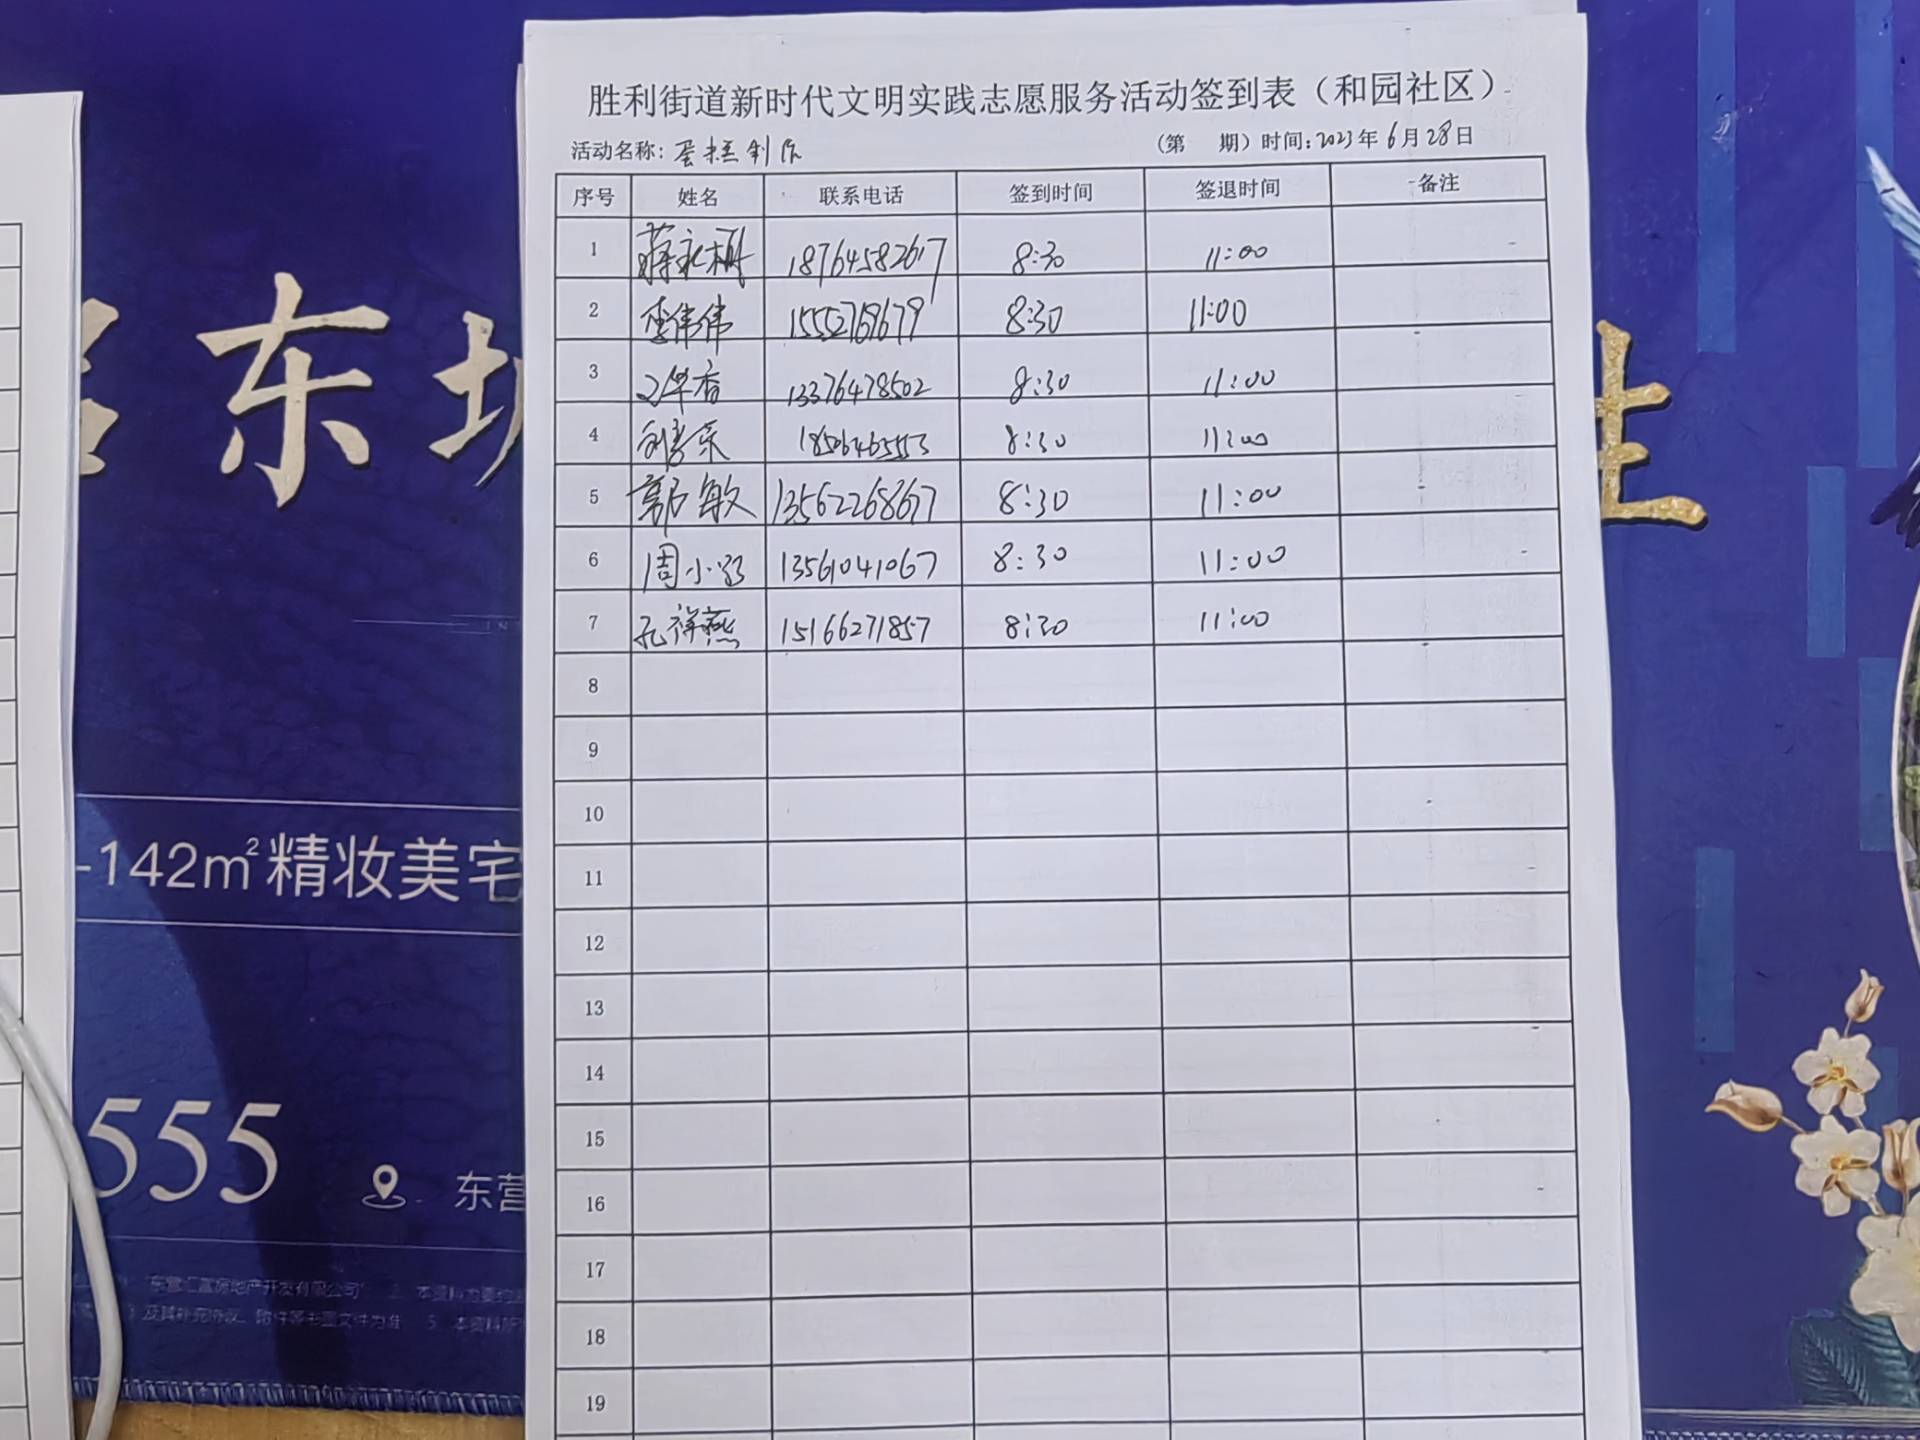 胜利街道新时代文明实践志愿服务活动签到表（和园社区）
活动名称：蛋糕制作 （第 期）时间：2023年6月28日
序号 姓名 联系电话 签到时间 签退时间 备注
1 蒋永梅 18764582617 8:30 11:00
2 李伟伟 15552769679 8:30 11:00
3 华香 13376478502 8:30 11:00
4 8:30 11:00
5 郭敏 13562268677 8:30 11:00
6 周小 13561041067 8:30 11:00
7 孔祥燕 15166271857 8:30 11:00
8
9
10
11
12
13
14
15
16
17
18
19
东城
-142m²精妆美宅
555
东营